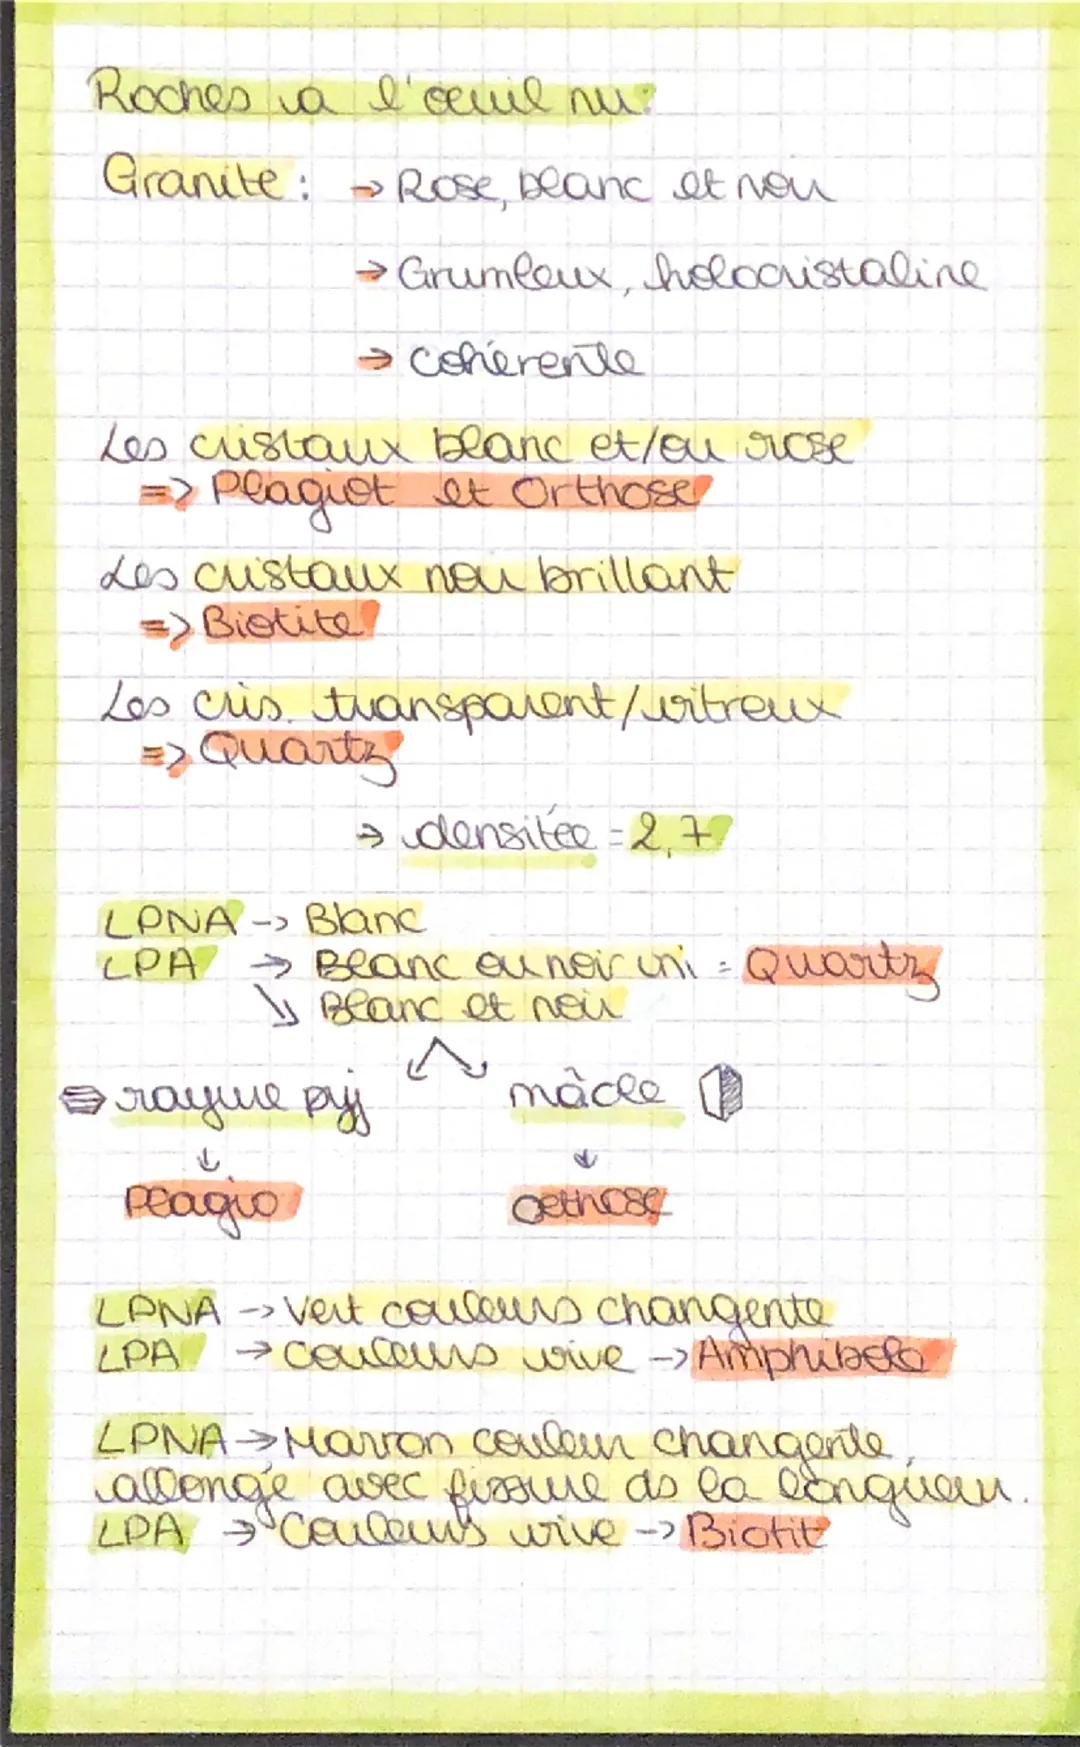 Roches à l'oeuil nu:
Granite : → Rose, blanc et noir
→ Grumleux, holocristaline
→ cohérente
Les cristaux blanc et/ou rose
=> Plagiot et Orthose
Les cristaux noir brillant
=> Biotite
Les cris. transparent/vitreux
=> Quartz
→ densitée = 2,7
LPNA -> Blanc
LPA → Blanc ou noir uni = Quartz
↘ Blanc et noir
rayure pyj mâcle
↓ ↓
Plagio Orthose
LPNA -> Vert couleurs changente
LPA → Couleurs vive -> Amphibole
LPNA → Marron couleur changente,
allongé avec fissure ds la longueur.
LPA → Couleurs vive -> Biotit